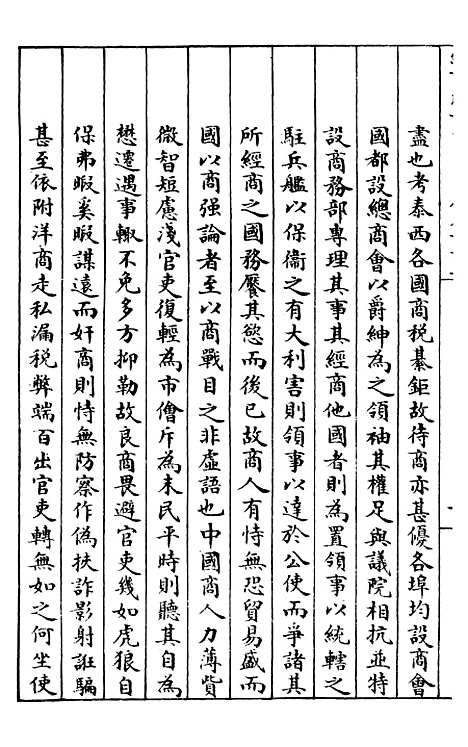 盡也考泰西各國商稅綦鉅故待商亦甚優各埠均設商會
國都設總商會以爵紳為之領袖其權足與議院相抗並特
設商務部專理其事其經商他國者則為置領事以統轄之
駐兵艦以保衞之有大利害則領事以達於公使而爭諸其
所經商之國務饜其慾而後已故商人有恃無恐貿易盛而
國以商强論者至以商戰目之非虛語也中國商人力薄貲
微智短慮淺官吏復輕為市儈斥為末民平時則聽其自為
懋遷遇事輙不免多方抑勒故良商畏避官吏幾如虎狼自
保弗暇奚暇謀遠而奸商則恃無防察作偽扶詐影射誑騙
甚至依附洋商走私漏税弊端百出官吏轉無如之何坐使